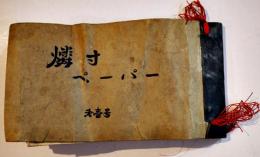 燐寸
ペーパー